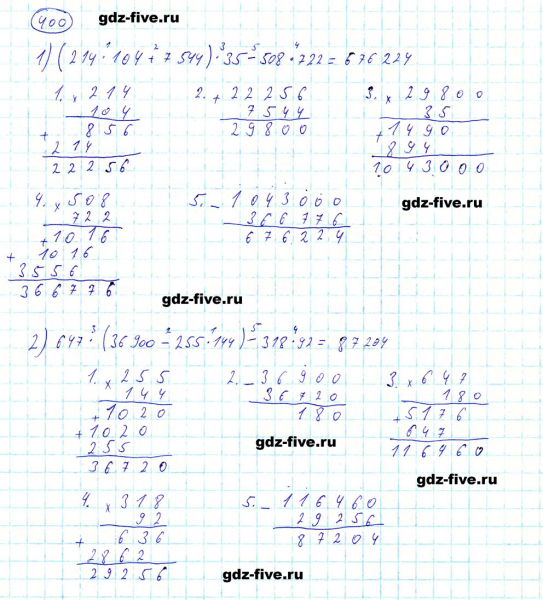 gdz-five.ru
400
1) (214 · 104 + 7 544) · 35 - 508 · 722 = 676 224
1. × 214
104
+ 856
214
22256
2. + 22256
7544
29800
3. × 29800
35
+ 1490
894
1043000
gdz-five.ru
4. × 508
722
+ 1016
+ 1016
3556
366776
5. - 1043000
366776
676224
gdz-five.ru
2) 647 · (36 900 - 255 · 144) - 318 · 92 = 87 204
1. × 255
144
+ 1020
+ 1020
255
36720
2. - 36900
36720
180
3. × 647
180
+ 5176
647
116460
gdz-five.ru
gdz-five.ru
4. × 318
92
+ 636
2862
29256
5. - 116460
29256
87204
gdz-five.ru